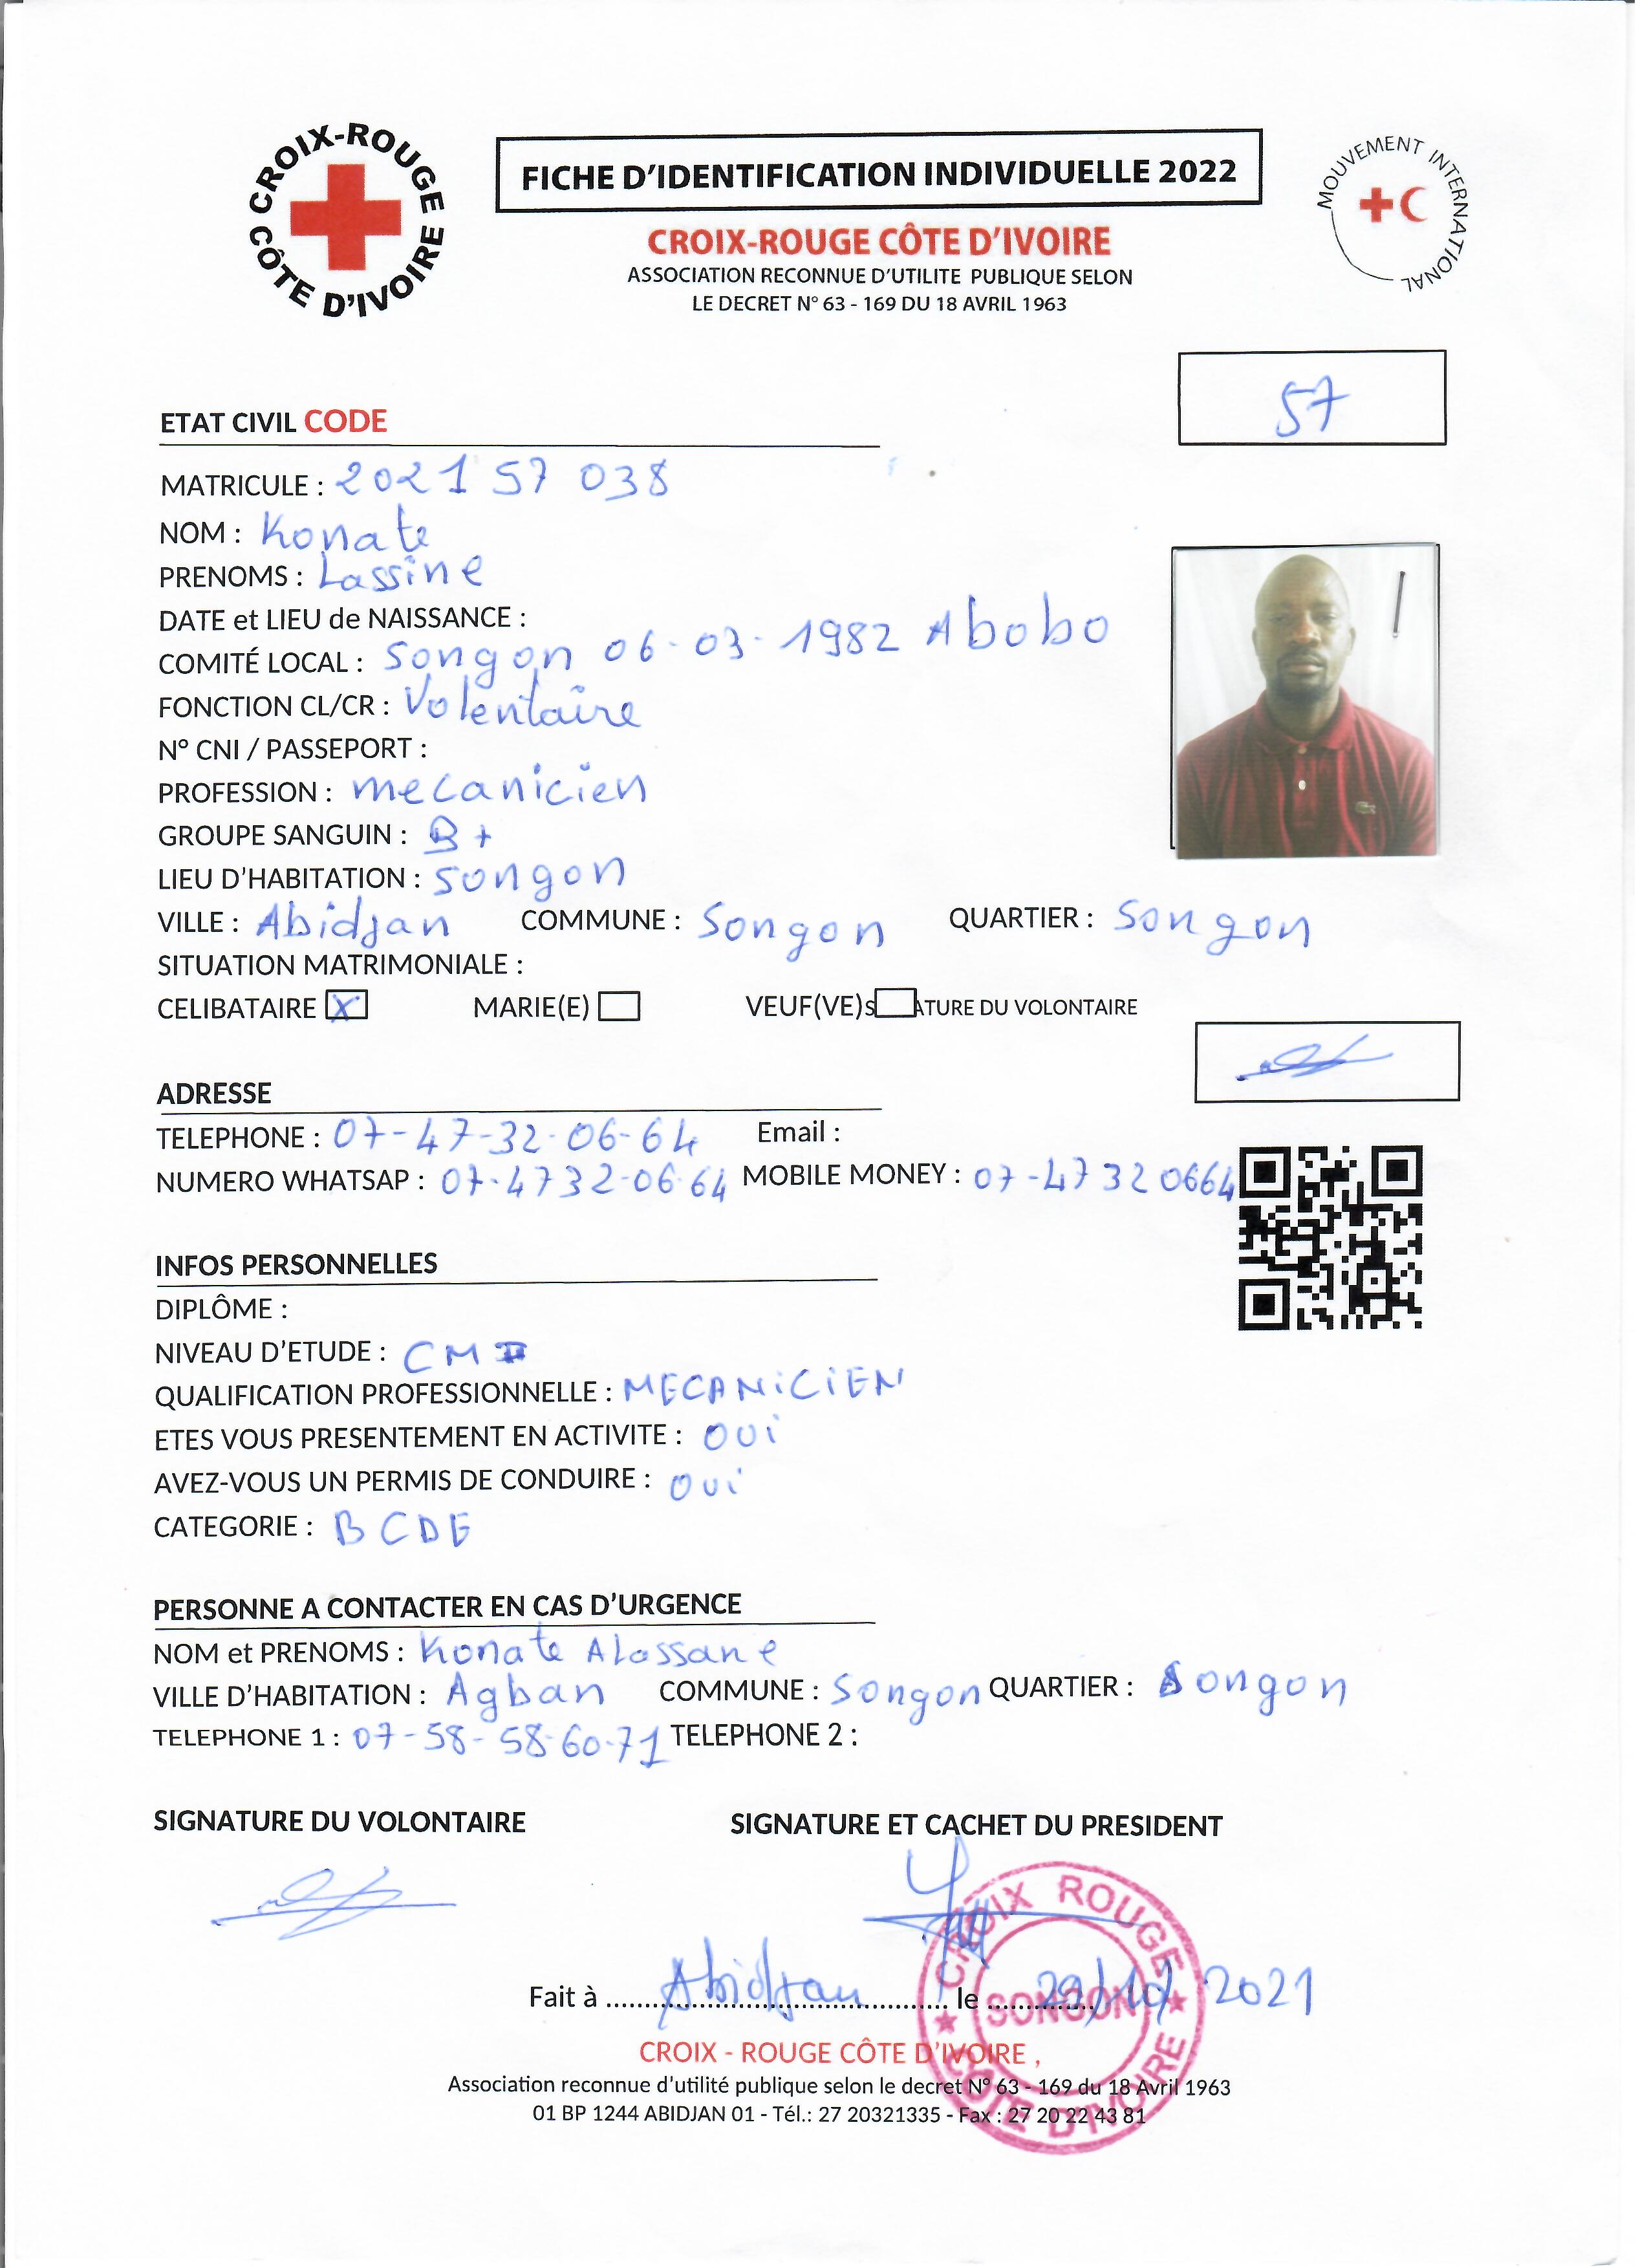 CROIX-ROUGE CÔTE D'IVOIRE
FICHE D'IDENTIFICATION INDIVIDUELLE 2022
MOUVEMENT INTERNATIONAL
CROIX-ROUGE CÔTE D'IVOIRE
ASSOCIATION RECONNUE D'UTILITE PUBLIQUE SELON
LE DECRET N° 63 - 169 DU 18 AVRIL 1963
57
ETAT CIVIL CODE
MATRICULE : 2021 57 038
NOM : Konate
PRENOMS : Lassine
DATE et LIEU de NAISSANCE : 06-03-1982 Abobo
COMITÉ LOCAL : Songon
FONCTION CL/CR : Volentaire
N° CNI / PASSEPORT :
PROFESSION : mecanicien
GROUPE SANGUIN : B+
LIEU D'HABITATION : Songon
VILLE : Abidjan COMMUNE : Songon QUARTIER : Songon
SITUATION MATRIMONIALE :
CELIBATAIRE X MARIE(E) VEUF(VE)s ATURE DU VOLONTAIRE
ADRESSE
TELEPHONE : 07-47-32-06-64 Email :
NUMERO WHATSAP : 07-4732-06-64 MOBILE MONEY : 07-47 32 0664
INFOS PERSONNELLES
DIPLÔME :
NIVEAU D'ETUDE : CM II
QUALIFICATION PROFESSIONNELLE : MECANiCiEN
ETES VOUS PRESENTEMENT EN ACTIVITE : OUi
AVEZ-VOUS UN PERMIS DE CONDUIRE : Oui
CATEGORIE : B C D E
PERSONNE A CONTACTER EN CAS D'URGENCE
NOM et PRENOMS : Konate Alassane
VILLE D'HABITATION : Agban COMMUNE : Songon QUARTIER : Songon
TELEPHONE 1 : 07-58-58-60-71 TELEPHONE 2 :
SIGNATURE DU VOLONTAIRE SIGNATURE ET CACHET DU PRESIDENT
CROIX ROUGE CÔTE D'IVOIRE SONGON
Fait à Abidjan le 29/10/2021
CROIX - ROUGE CÔTE D'IVOIRE ,
Association reconnue d'utilité publique selon le decret N° 63 - 169 du 18 Avril 1963
01 BP 1244 ABIDJAN 01 - Tél.: 27 20321335 - Fax : 27 20 22 43 81